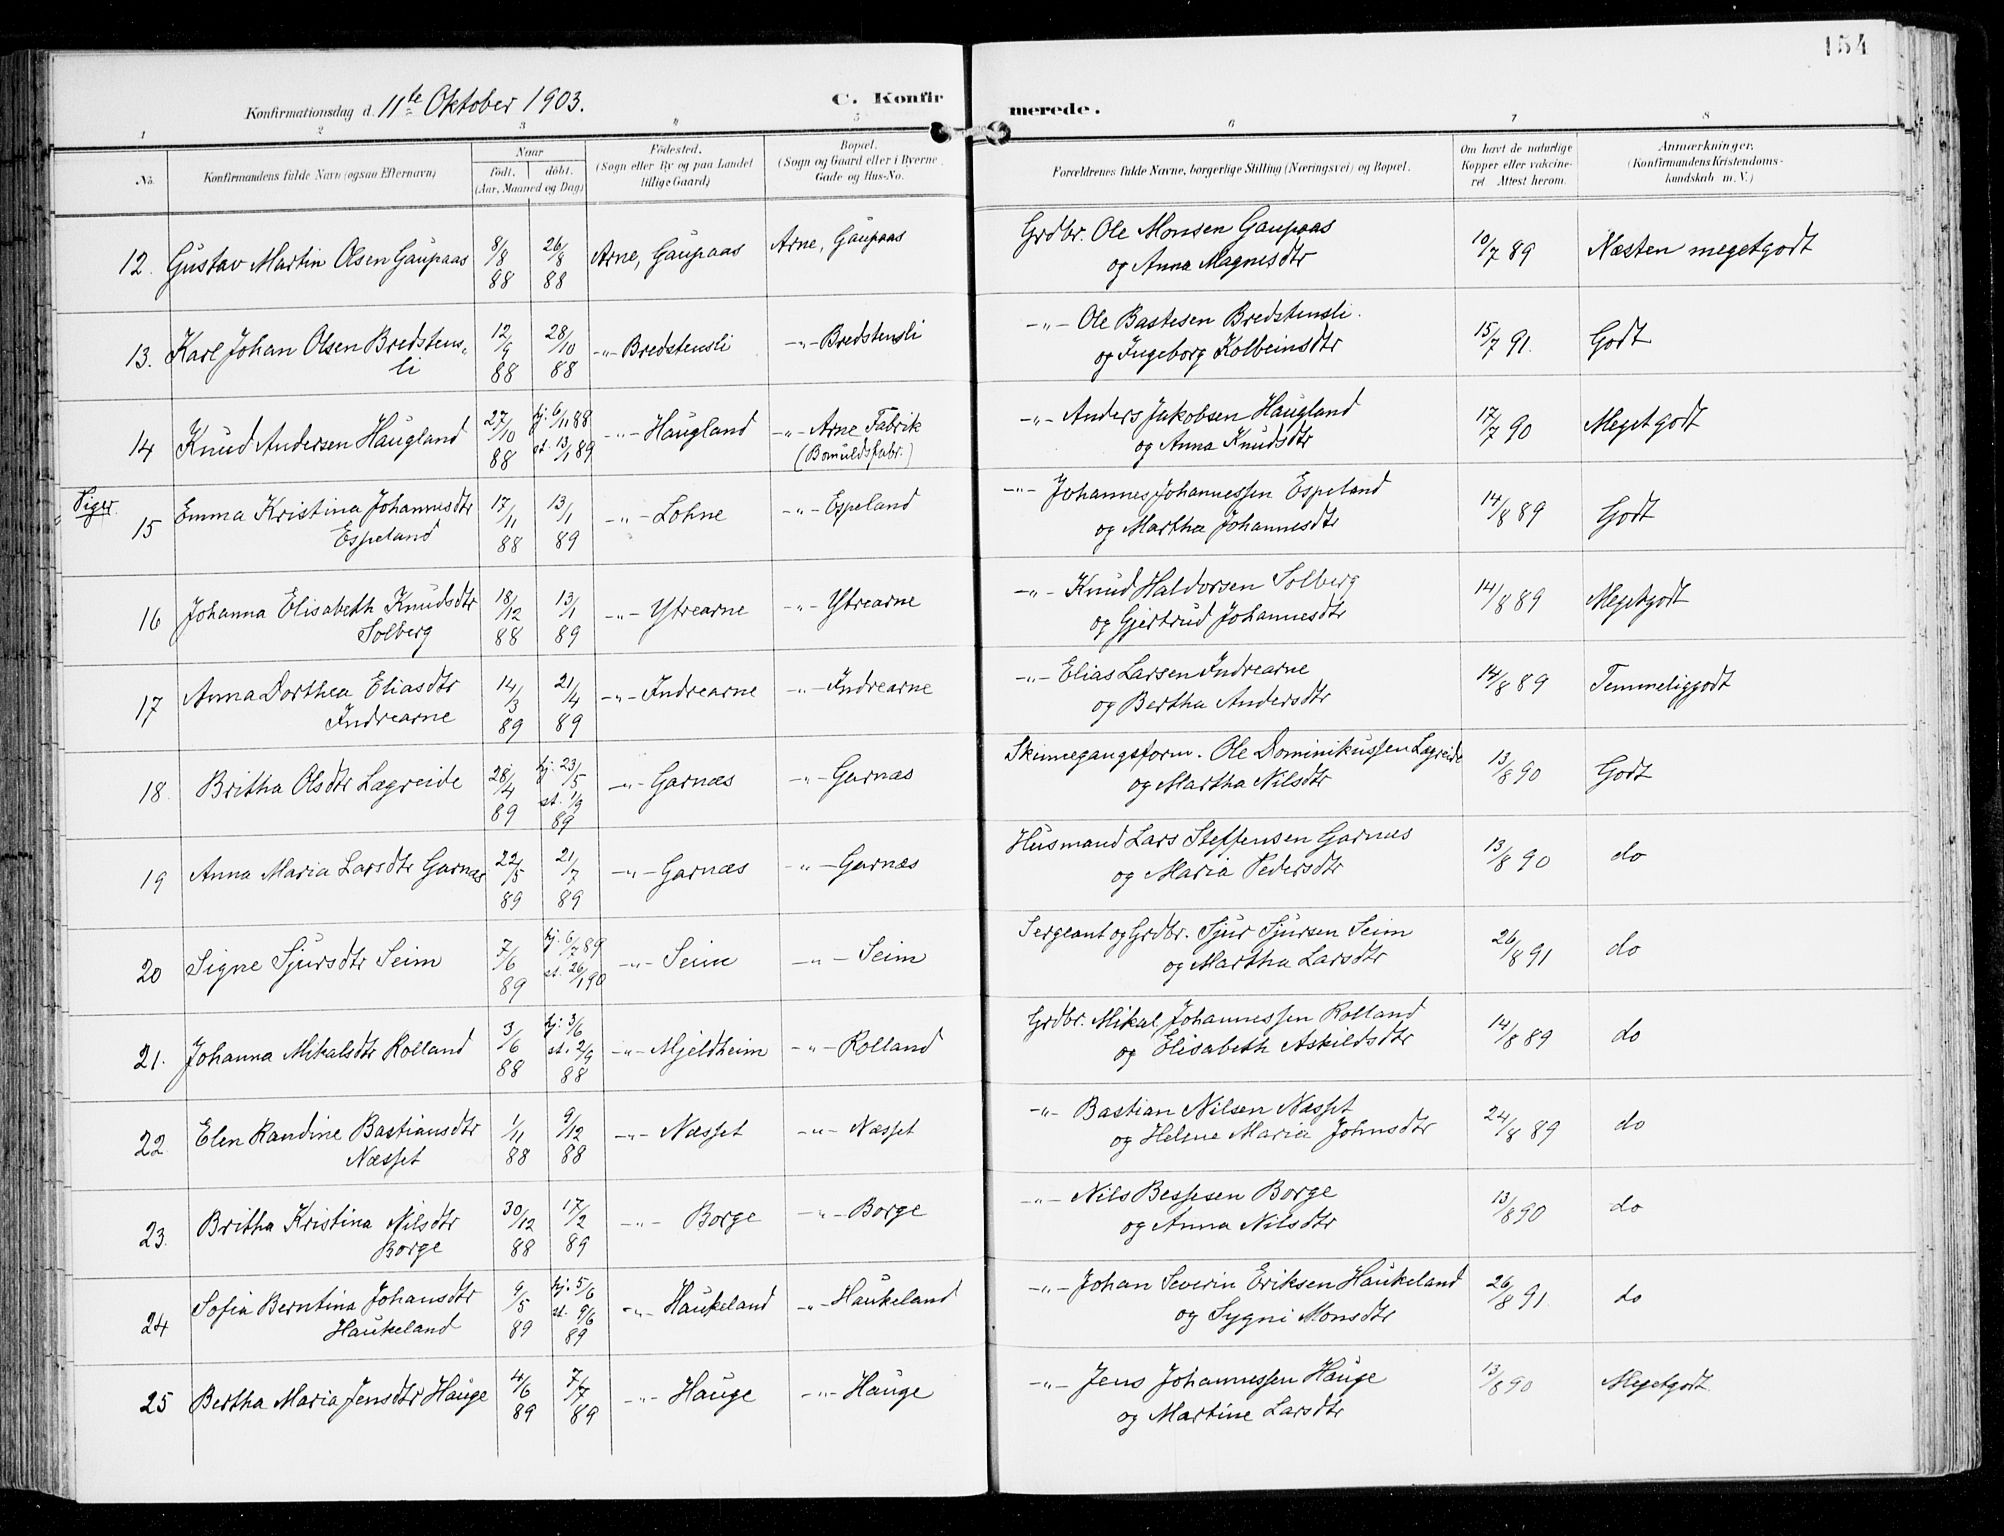 154
Konfirmationsdag d. 11te Oktober 1903. C. Konfirmerede.
1 2 3 4 5 6 7 8
No. Konfirmandens fulde Navn (ogsaa Efternavn) Naar födt. döbt. (Aar, Maaned og Dag) Födested. (Sogn eller By og paa Landet tillige Gaard) Bopæl. (Sogn og Gaard eller i Byerne Gade og Hus-No. Forældrenes fulde Navne, borgerlige Stilling (Næringsvei) og Bopæl. Om havt de naturlige Kopper eller vakcineret Attest herom. Anmærkninger. (Konfirmandens Kristendomskundskab m. V.)
12. Gustav Martin Olsen Gaupaas 8/8 88 26/8 88 Arne, Gaupaas Arne, Gaupaas Grdbr. Ole Monsen Gaupaas og Anna Magnesdtr 10/7 89 Næsten megetgodt
13. Karl Johan Olsen Bredstensli 12/9 88 28/10 88 -"- Bredstensli -"- Bredstensli -"- Ole Bastesen Bredstensli. og Ingeborg Kolbeinsdtr 15/7 91. Godt
14 Knud Andersen Haugland 27/10 88 hj. 6/11 88 st. 13/1 89 -"- Haugland -"- Arne Fabrik (Bomuldsfabr.) -"- Anders Jakobsen Haugland og Anna Knudsdtr 17/7 90 Megetgodt
Piger.
15 Emma Kristina Johannesdtr Espeland 17/11 88 13/1 89 -"- Lohne -"- Espeland -"- Johannes Johannessen Espeland og Martha Johannesdtr 14/8 89 Godt
16 Johanna Elisabeth Knudsdtr Solberg 18/12 88 13/1 89 -"- Ytrearne -"- Ytrearne -"- Knud Haldorsen Solberg og Gjertrud Johannesdtr 14/8 89 Megetgodt
17 Anna Dorthea Eliasdtr Indrearne 14/3 89 21/4 89 -"- Indrearne -"- Indrearne -"- Elias Larsen Indrearne og Bertha Andersdtr 14/8 89 Temmeliggodt
18. Britha Olsdtr Lægreide 28/4 89 hj. 23/5 st. 1/9 89 -"- Garnæs -"- Garnæs Skinnegangsform. Ole Dominikussen Lægreide og Martha Nilsdtr 13/8 90 Godt
19 Anna Maria Larsdtr Garnæs 22/5 89 21/7 89 -"- Garnæs -"- Garnæs Husmand Lars Steffensen Garnæs og Maria Pedersdtr 13/8 90 do
20 Signe Sjursdtr Seim 7/6 89 hj. 6/7 89 st. 26/1 90 -"- Seim -"- Seim Sergeant og Grdbr. Sjur Sjursen Seim og Martha Larsdtr 26/8 91 do
21. Johanna Mikalsdtr Rolland 3/6 88 hj. 3/6 st. 2/9 88 -"- Mjeldheim -"- Rolland Grdbr. Mikal Johannessen Rolland og Elisabeth Askildsdtr 14/8 89 do
22. Elen Randine Bastiansdtr Næsset 1/11 88 9/12 88 -"- Næsset -"- Næsset -"- Bastian Nilsen Næsset og Helene Maria Johnsdtr 24/8 89 do
23. Britha Kristina Nilsdtr Borge 30/12 88 17/2 89 -"- Borge -"- Borge -"- Nils Bessesen Borge og Anna Nilsdtr 13/8 90 do
24 Sofia Berntina Johansdtr Haukeland 9/5 89 hj. 5/6 st. 9/6 89 -"- Haukeland -"- Haukeland -"- Johan Severin Eriksen Haukeland og Sygni Monsdtr 26/8 91. do
25 Bertha Maria Jensdtr Hauge 4/6 89 7/7 89 -"- Hauge -"- Hauge -"- Jens Johannessen Hauge og Martine Larsdtr 13/8 90 Megetgodt